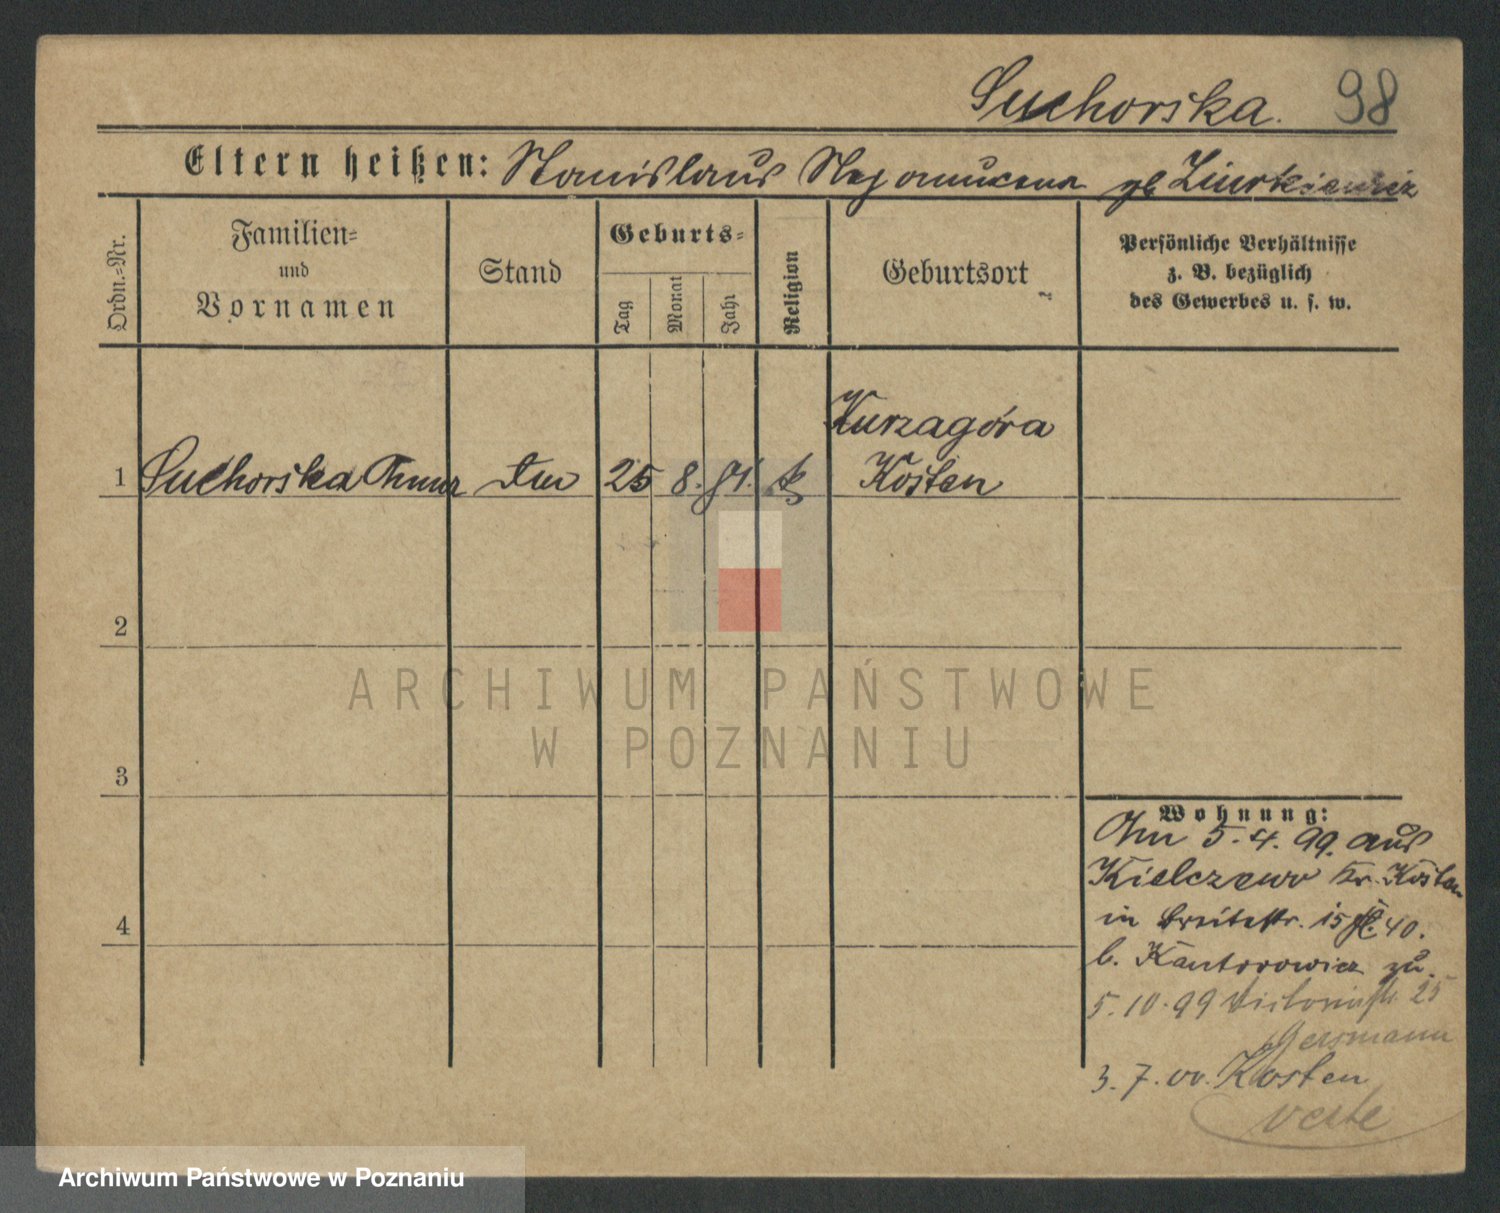 Suchorska. 98
Eltern heißen: Stanislaus Nepomucena gb
Ordn.=Nr.
Familien=
und
Vornamen
Stand
Geburts=
Tag
Monat
Jahr
Religion
Geburtsort
Persönliche Verhältnisse
z. B. bezüglich
des Gewerbes u. s. w.
Kurzagóra
1 Suchorska 25 8. k Kosten
2
ARCHIWUM PAŃSTWOWE
W POZNANIU
3
Wohnung:
5. 4. 99. aus
Kielczewo Kr. Kosten
4
in Breitestr. 15 40.
b. Kantorowicz zu.
5. 10. 99 Victoriastr. 25
3. 7. 00. Kosten
Archiwum Państwowe w Poznaniu